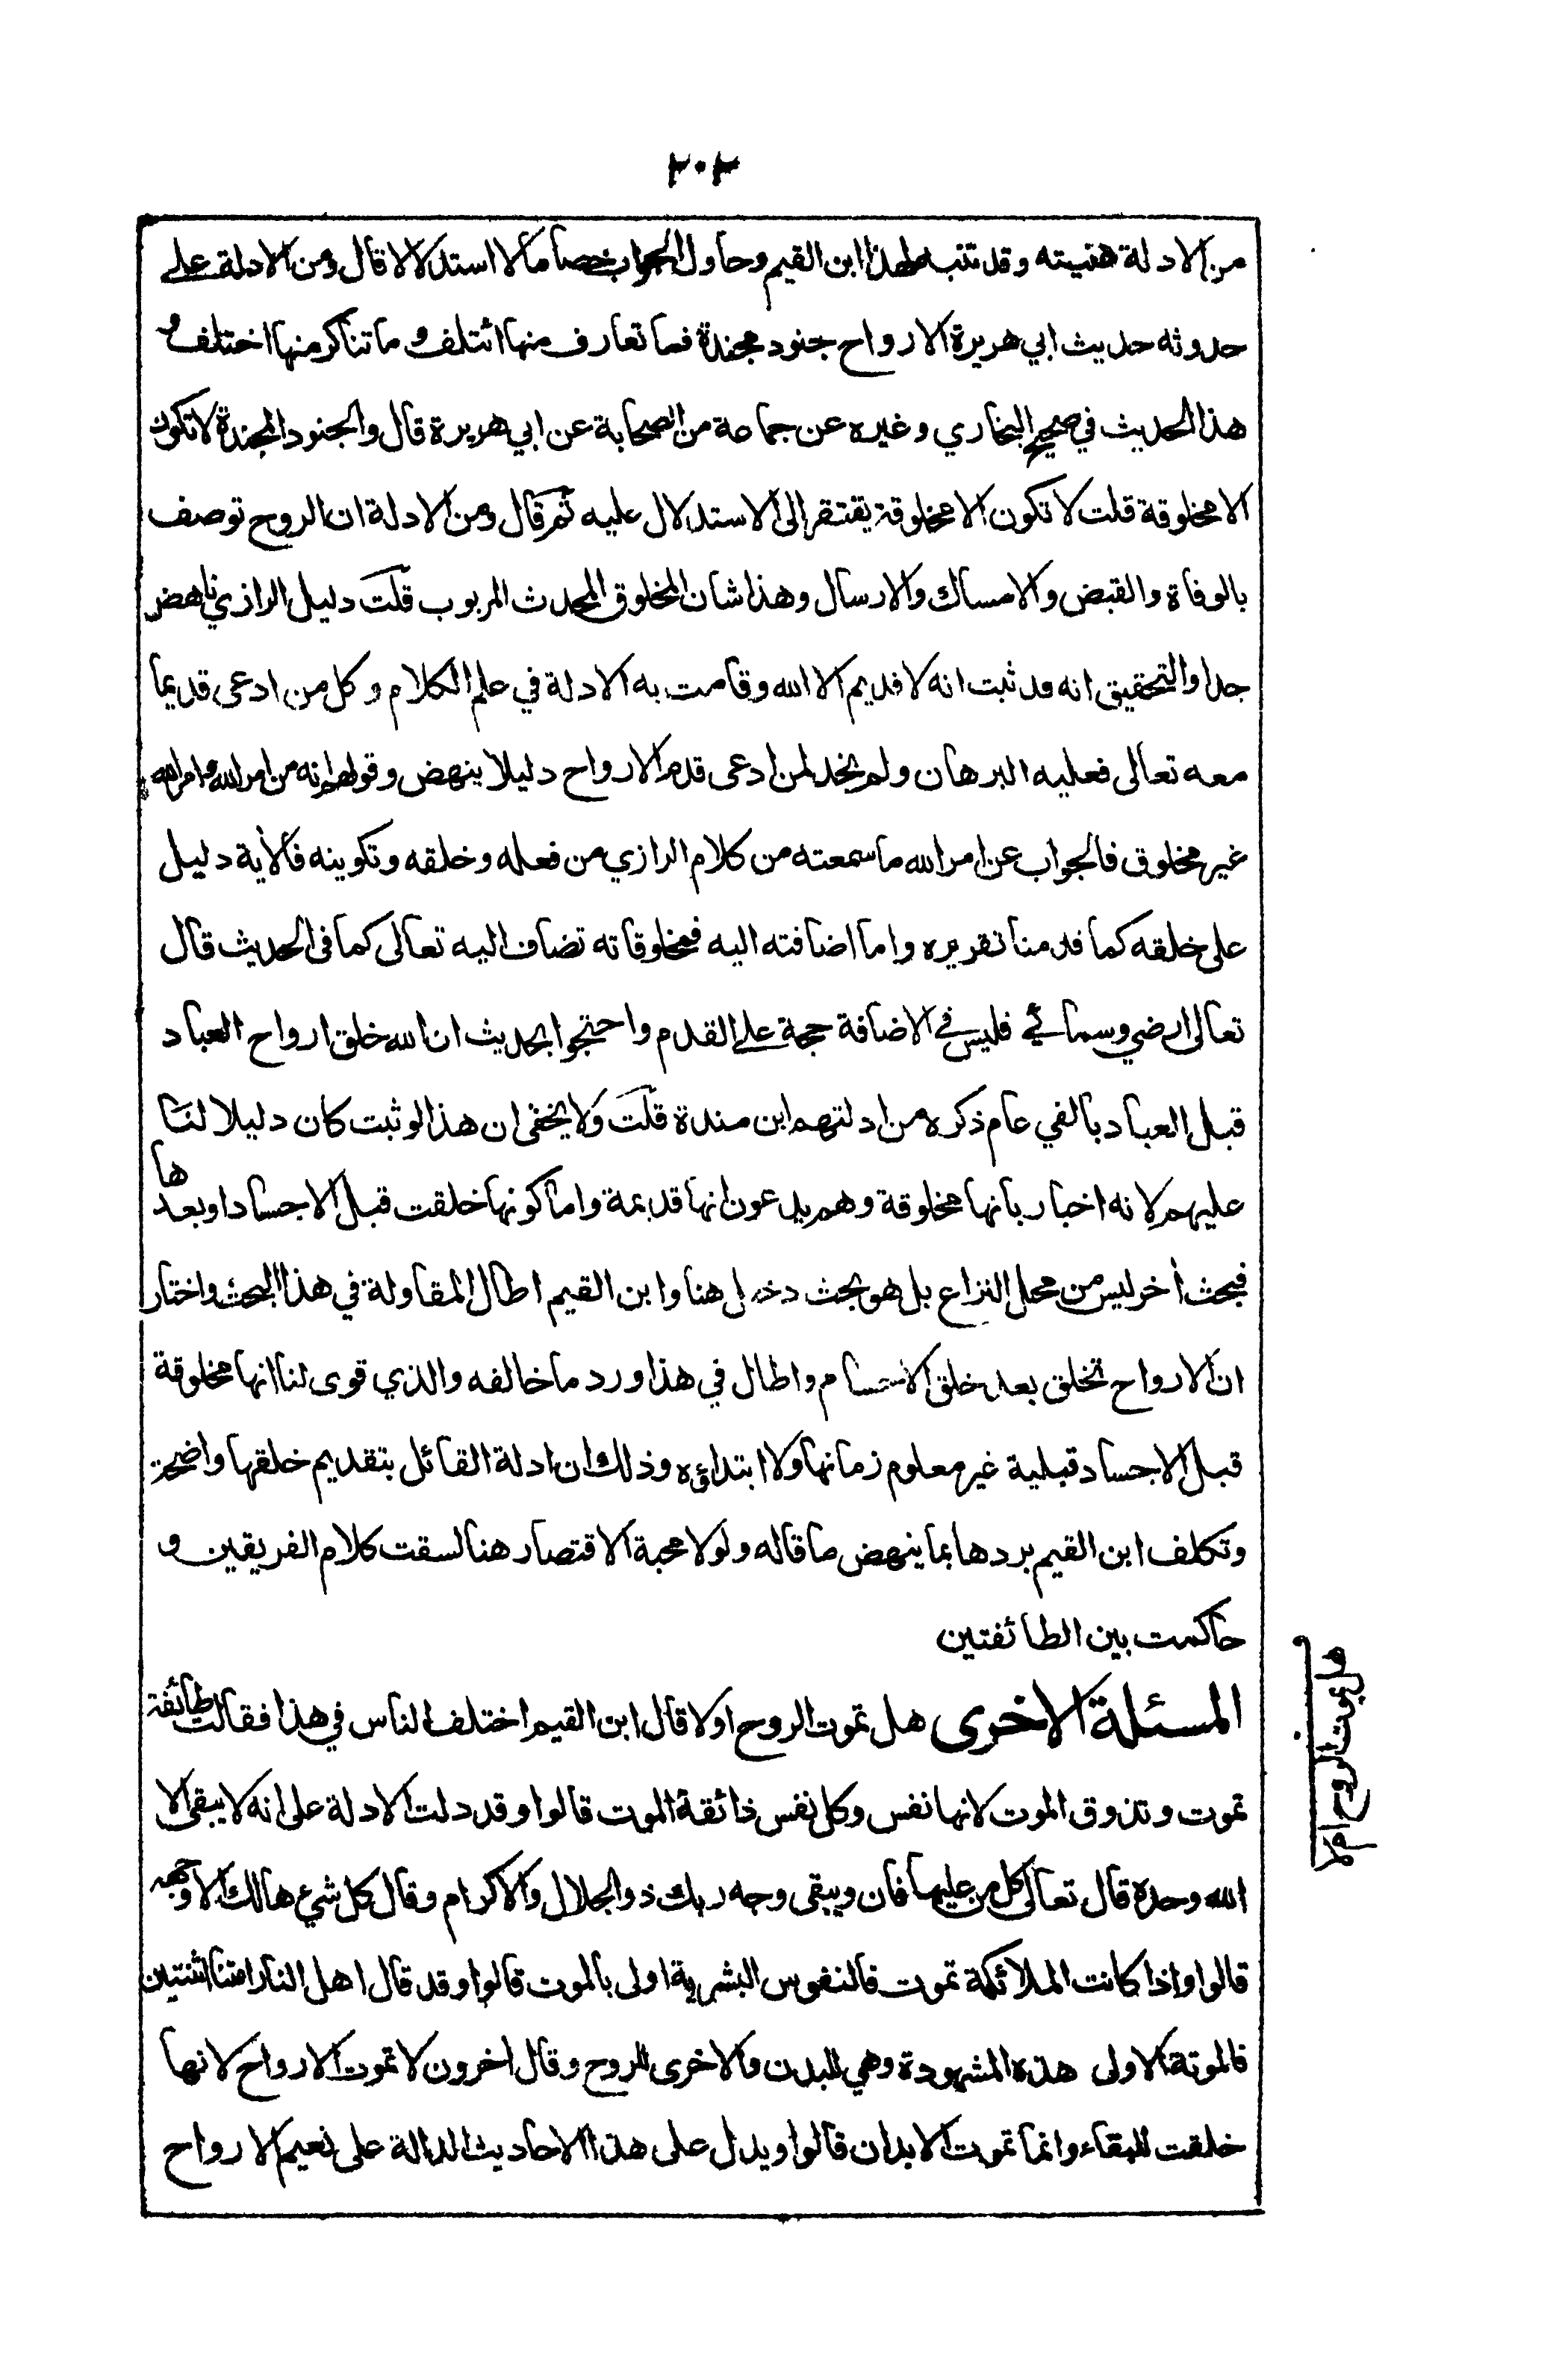 ٢٠٢
من الادلة هنيته وقد تنبه لهذا ابن القيم وحاول الجواب خصاما لا استدلالا قال ومن الادلة على
حدوثه حديث ابي هريرة الارواح جنود مجندة فما تعارف منها ائتلف وما تناكر منها اختلف و
هذا الحديث في صحيح البخاري وغيره عن جماعة من الصحابة عن ابي هريرة قال والجنود المجندة لا تكون
الا مخلوقة قلت لا تكون الا مخلوقة يفتقر الى الاستدلال عليه ثم قال ومن الادلة ان الروح توصف
بالوفاة والقبض والامساك والارسال وهذا شان المخلوق المحدث المربوب قلت دليل الرازي ناهض
جدا والتحقيق انه قد ثبت انه لا قديم الا الله وقامت به الادلة في علم الكلام وكل من ادعى قديما
معه تعالى فعليه البرهان ولم نجد لمن ادعى قدم الارواح دليلا ينهض وقولهم انه من امر الله وامر الله
غير مخلوق فالجواب عن امر الله ما سمعته من كلام الرازي من فعله وخلقه وتكوينه فالأية دليل
على خلقه كما قدمنا تقريره واما اضافته اليه فمخلوقاته تضاف اليه تعالى كما في الحديث قال
تعالى ارضي وسمائي فليس في الاضافة حجة على القدم واحتجوا بحديث ان الله خلق ارواح العباد
قبل العباد بالفي عام ذكره من ادلتهم ابن مندة قلت ولا يخفى ان هذا لو ثبت كان دليلا لنا
عليهم لانه اخبار بانها مخلوقة وهم يدعون انها قديمة واما كونها خلقت قبل الاجساد او بعدها
فبحث أخر ليس من محل النزاع بل هو بحث دخيل هنا وابن القيم اطال المقاولة في هذا البحث واختار
ان الارواح تخلق بعد خلق الاجسام واطال في هذا ورد ما خالفه والذي قوى لنا انها مخلوقة
قبل الاجساد قبلية غير معلوم زمانها ولا ابتداؤه وذلك ان ادلة القائل بتقديم خلقها واضحة
وتكلف ابن القيم بردها بما ينهض ما قاله ولولا محبة الاقتصار هنا لسقت كلام الفريقين و
حاكمت بين الطائفتين
المسئلة الاخرى هل تموت الروح اولا قال ابن القيم اختلف الناس في هذا فقالت طائفة
تموت وتذوق الموت لانها نفس وكل نفس ذائقة الموت قالوا وقد دلت الادلة على انه لا يبقى الا
الله وحده قال تعالى كل من عليها فان ويبقى وجه ربك ذو الجلال والاكرام وقال كل شيء هالك الا وجهه
قالوا واذا كانت الملائكة تموت فالنفوس البشرية اولى بالموت قالوا وقد قال اهل النار امتنا اثنتين
فالموتة الاولى هذه المشهودة وهي للبدن والاخرى للروح وقال اخرون لا تموت الارواح لانها
خلقت للبقاء وانما تموت الابدان قالوا ويدل على هذا الاحاديث الدالة على نعيم الارواح
هل يموت الروح ام لا